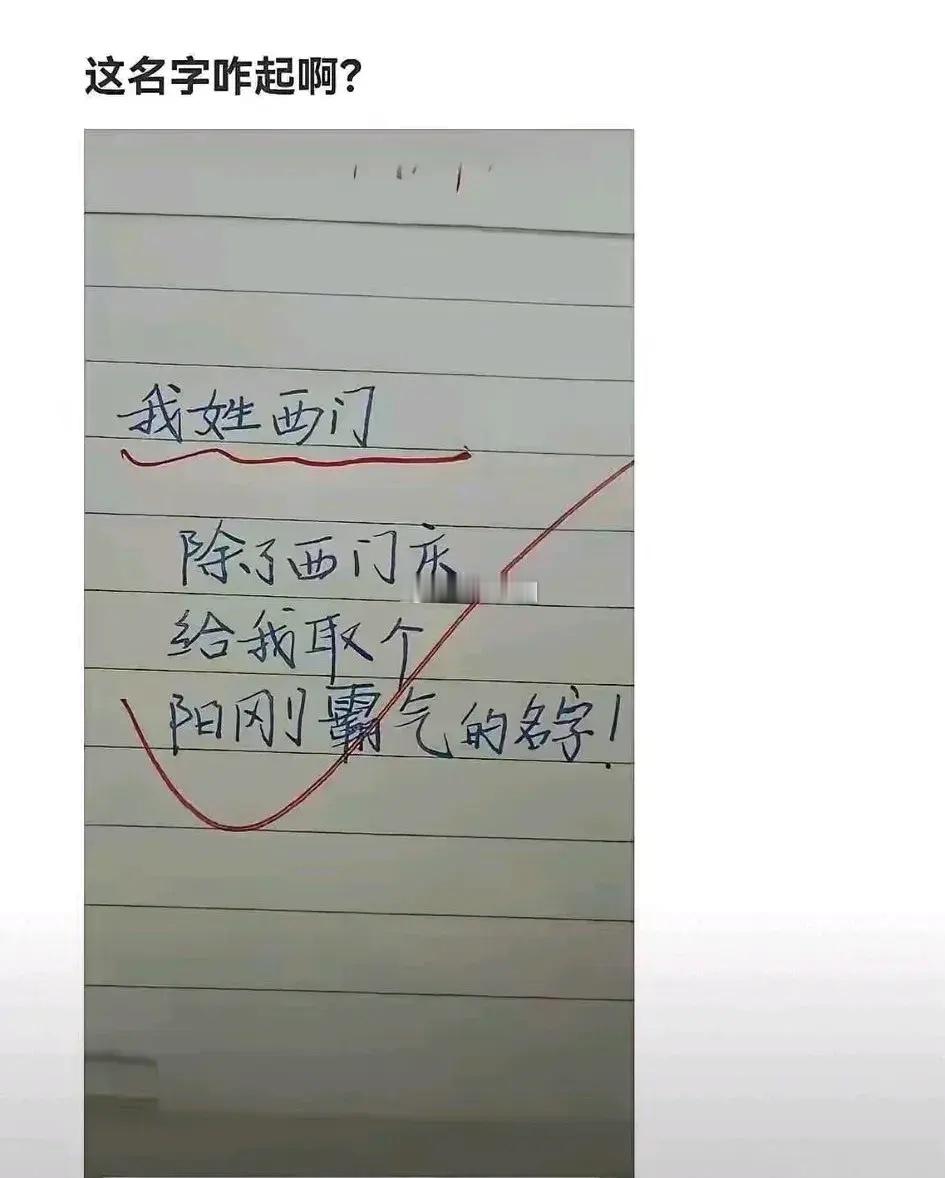 这名字咋起啊?
我姓西门
除了西门庆
给我取个
阳刚霸气的名字!